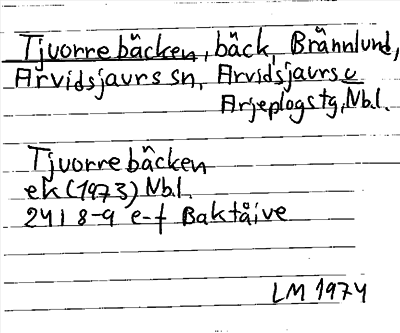 Tjuorrebäcken, bäck, Brännlund,
Arvidsjaurs sn, Arvidsjaurs c
Arjeplogs tg, Nb.l.
Tjuorrebäcken
ek (1973) Nb.l.
24I 8-9 e-f Baktåive
LM 1974